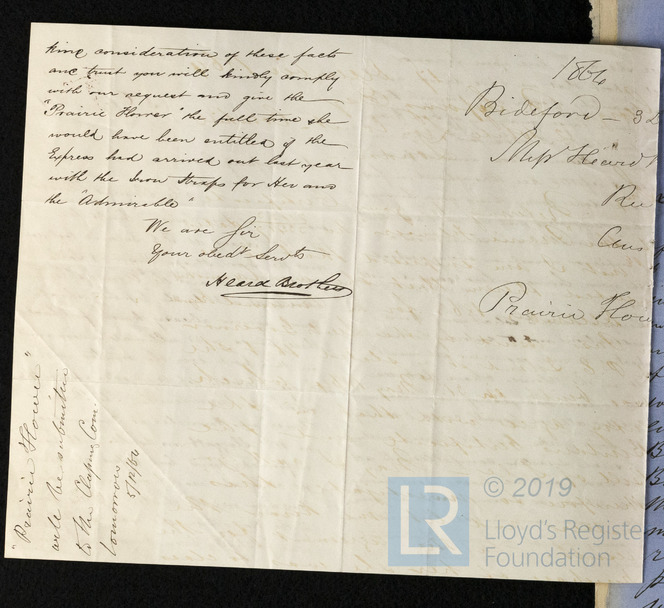 king consideration of these facts
and trust you will kindly comply
with our request and give the
"Prairie Flower" the full time she
would have been entitled if the
Express had arrived out last year
with the Iron Straps for Her and
the "Admirable"
We are Sir
Your obedt Servts
Heard Brothers
"Prairie Flower"
will be submitted
to the Classing Com:
tomorrow
5/12/66
1866
Bideford - 3 D
Messrs Heard
Re
Prairie Flow
LR
© 2019
Lloyd's Registe
Foundation